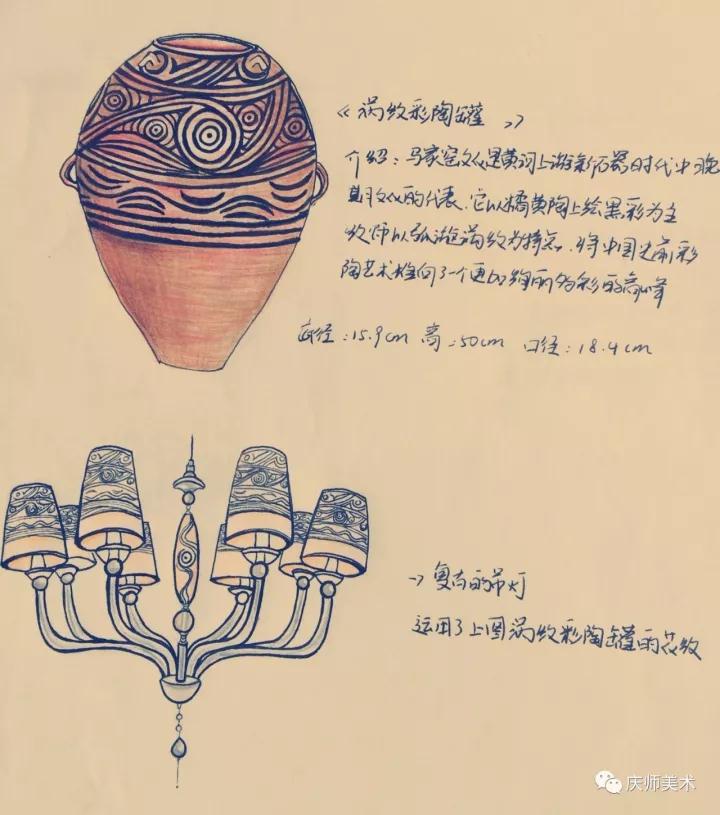 《涡纹彩陶罐》
介绍：马家窑文化是黄河上游新石器时代中晚
期文化的代表，它以橘黄陶上绘黑彩为主
纹饰以弧漩涡纹为特点，将中国史前彩
陶艺术推向了一个更加绚丽多彩的高峰
底径：15.9cm 高：50cm 口径：18.4cm
→复古的吊灯
运用了上图涡纹彩陶罐的花纹
庆师美术